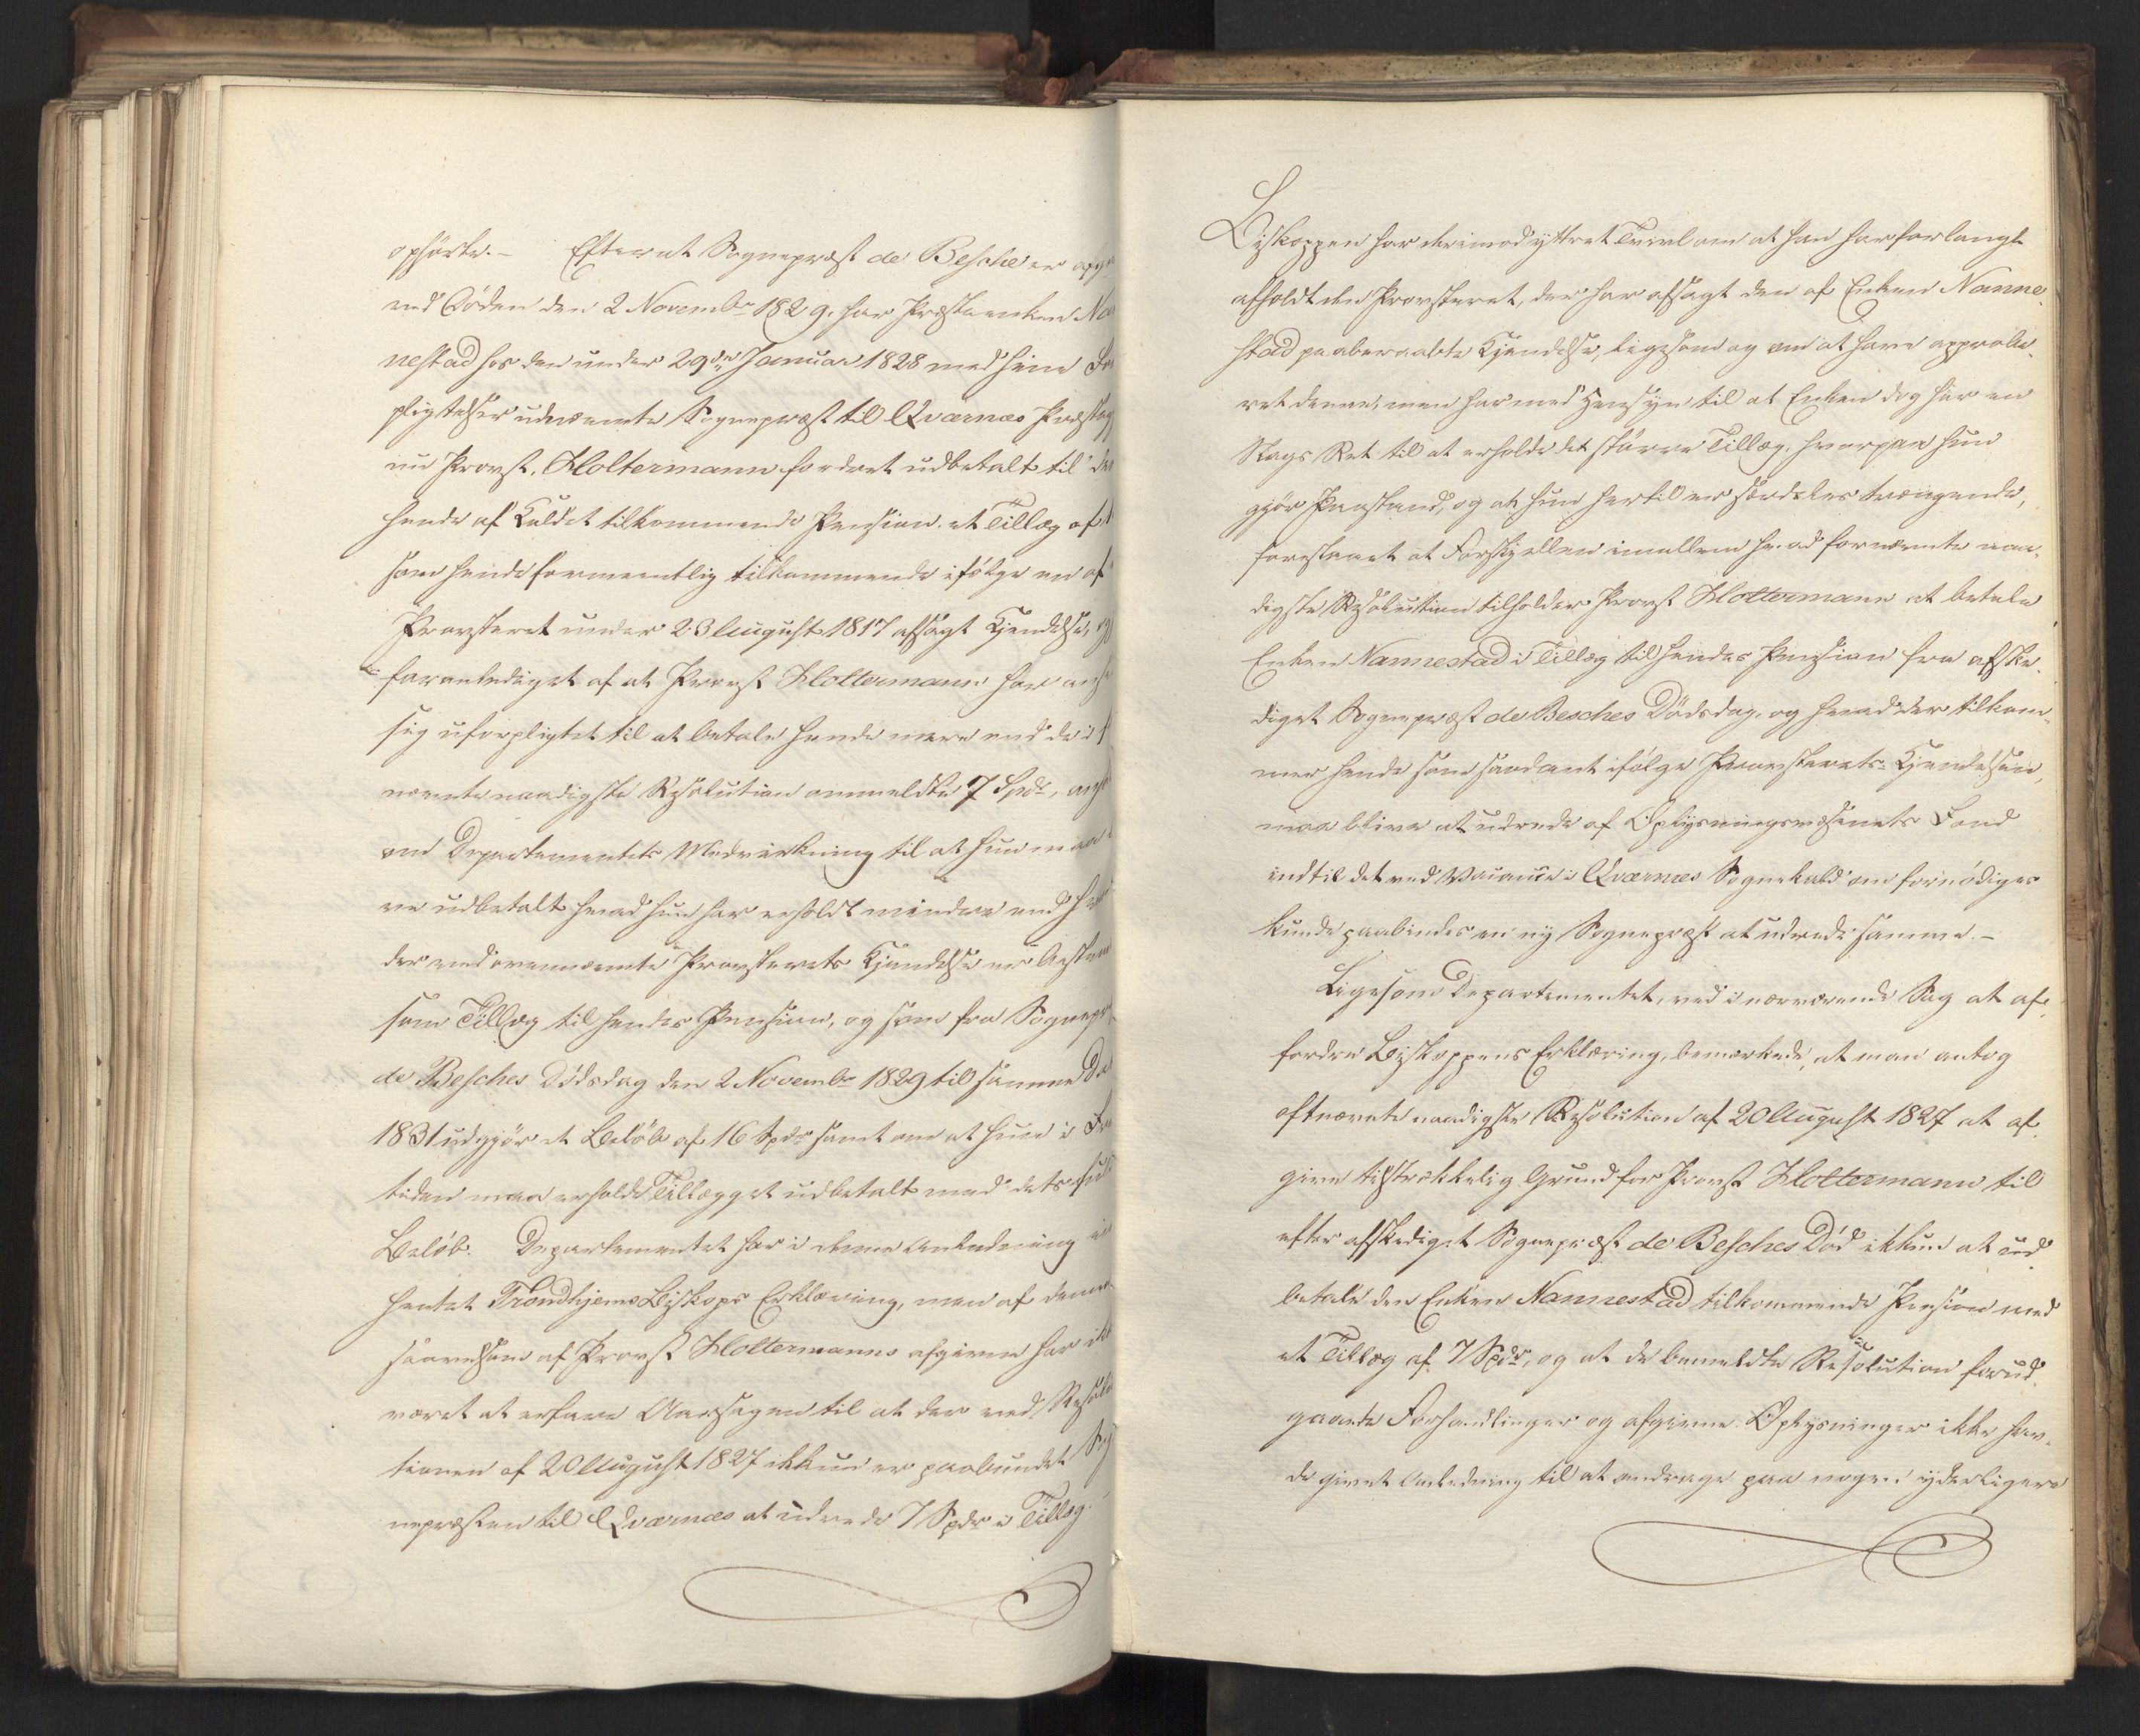 ophørte. – Efterat Sognepræst de Besche er afg
ved Døden den 2 Novembr 1829, har Præsteenken Na
nestad hos den under 29de Januar 1828 med hine For
pligtelser udnævnte Sognepræst til Qværnæs Præsteg
nu Provst, Holtermann fordret udbetalt til den
hende af Kaldet tilkommende Pension et Tillæg af
som hende formeentlig tilkommende ifølge en af
Provsteret under 23 August 1817 afsagt Kjendelse, og
foranlediget af at Provst Holtermann har ans
sig uforpligtet til at betale hende mere end de i f
nævnte naadigste Resolution ommeldte 7 Spdr, ans
om Departementets Medvirkning til at hun maa
ve udbetalt hvad hun har erholdt mindre end h
der ved ovennævnte Provsterets Kjendelse er bestem
som Tillæg til hendes Pension, og som fra Sognepr
de Besches Dødsdag den 2 Novembr 1829 til samme Da
1831 udgjør et Beløb af 16 Spdr samt om at hun i Frem
tiden maa erholde Tillægget udbetalt med dets fu
Beløb. Departementet har i denne Anledning in
hentet Trondhjems Biskops Erklæring, men af denne
saavelsom af Provst Holtermanns afgivne har ikke
været at erfare Aarsagen til at der ved Resolu
tionen af 20 August 1827 ikkun er paabundet Sog
nepræsten til Qværnæs at udrede 7 Spdr i Tillæg.
Biskoppen har derimod yttret Tvivl om at han har forlangt
afholdt den Provsteret, der har afsagt den af Enken Nanne-
stad paaberaabte Kjendelse, ligesom og om at have approbe-
ret denne, men har med Hensyn til at Enken dog har en
Slags Ret til at erholde det større Tillæg, hvorpaa hun
gjør Paastand, og at hun hertil er særdeles trængende,
foreslaaet at Forskjellen imellem hvad fornævnte naa-
digste Resolution tilholder Provst Holtermann at betale
Enken Nannestad i Tillæg til hendes Pension fra afske-
diget Sognepræst de Besches Dødsdag, og hvad der tilkom-
mer hende som saadant ifølge Provsterets-Kjendelsen,
maa blive at udrede af Oplysningsvæsenets Fond
indtil det ved Vacance i Qværnæs Sognekald om fornødiges
kunde paabindes en ny Sognepræst at udrede samme. –
Ligesom Departementet, ved i nærværende Sag at af-
fordre Biskoppens Erklæring, bemærkede, at man antog
oftnævnte naadigste Resolution af 20 August 1827 at af-
give tilstrækkelig Grund for Provst Holtermann til
efter afskediget Sognepræst de Besches Død ikkun at ud-
betale den Enken Nannestad tilkommende Pension med
et Tillæg af 7 Spdr, og at de bemeldte Resolution forud-
gaaede Forhandlinger og afgivne Oplysninger ikke hav-
de givet Anledning til at andrage paa nogen yderligere